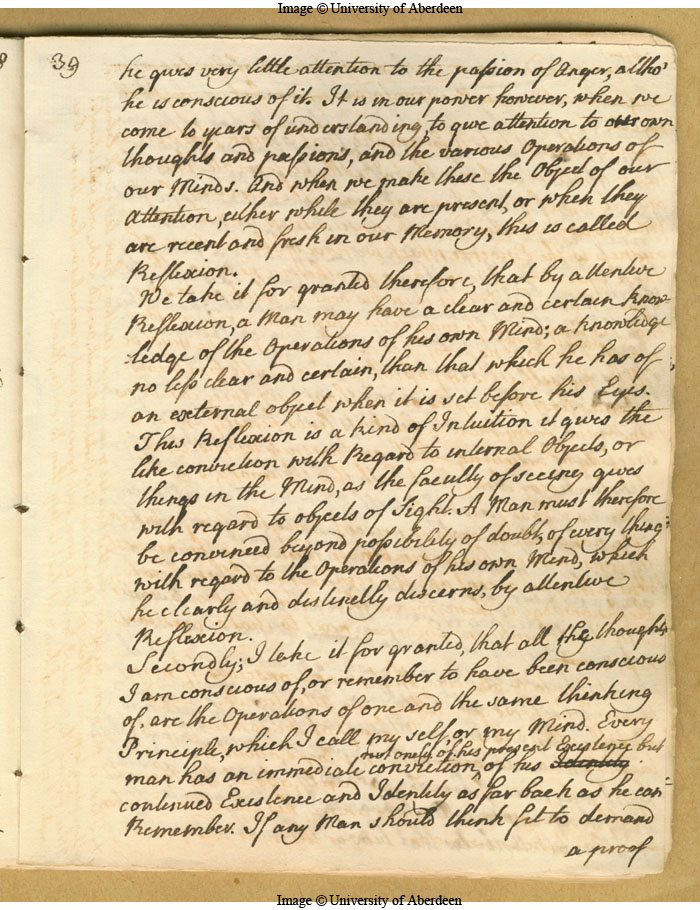 Image © University of Aberdeen
39
he gives very little attention to the passion of Anger, altho'
he is conscious of it. It is in our power however, when we
come to years of understanding, to give attention to our own
thoughts and passions, and the various Operations of
our Minds. And when we make these the Object of our
Attention, either while they are present, or when they
are recent and fresh in our Memory, this is called
Reflexion.
We take it for granted therefore, that by attentive
Reflexion, a Man may have a clear and certain know-
ledge of the Operations of his own Mind; a knowledge
no less clear and certain, than that which he has of
an external object when it is set before his Eyes.
This Reflexion is a kind of Intuition it gives the
like conviction with Regard to internal Objects, or
things in the Mind, as the faculty of seeing gives
with regard to objects of Sight. A Man must therefore
be convinced beyond possibility of doubt, of every thing
with regard to the Operations of his own Mind, which
he clearly and distinctly discerns, by attentive
Reflexion.
Secondly; I take it for granted, that all the thoughts
I am conscious of, or remember to have been conscious
of, are the Operations of one and the same thinking
Principle, which I call my self, or my Mind. Every
not only of his present Existence but
man has an immediate conviction, of his Identity
continued Existence and Identity as far back as he can
Remember. If any Man should think fit to demand
a proof
Image © University of Aberdeen